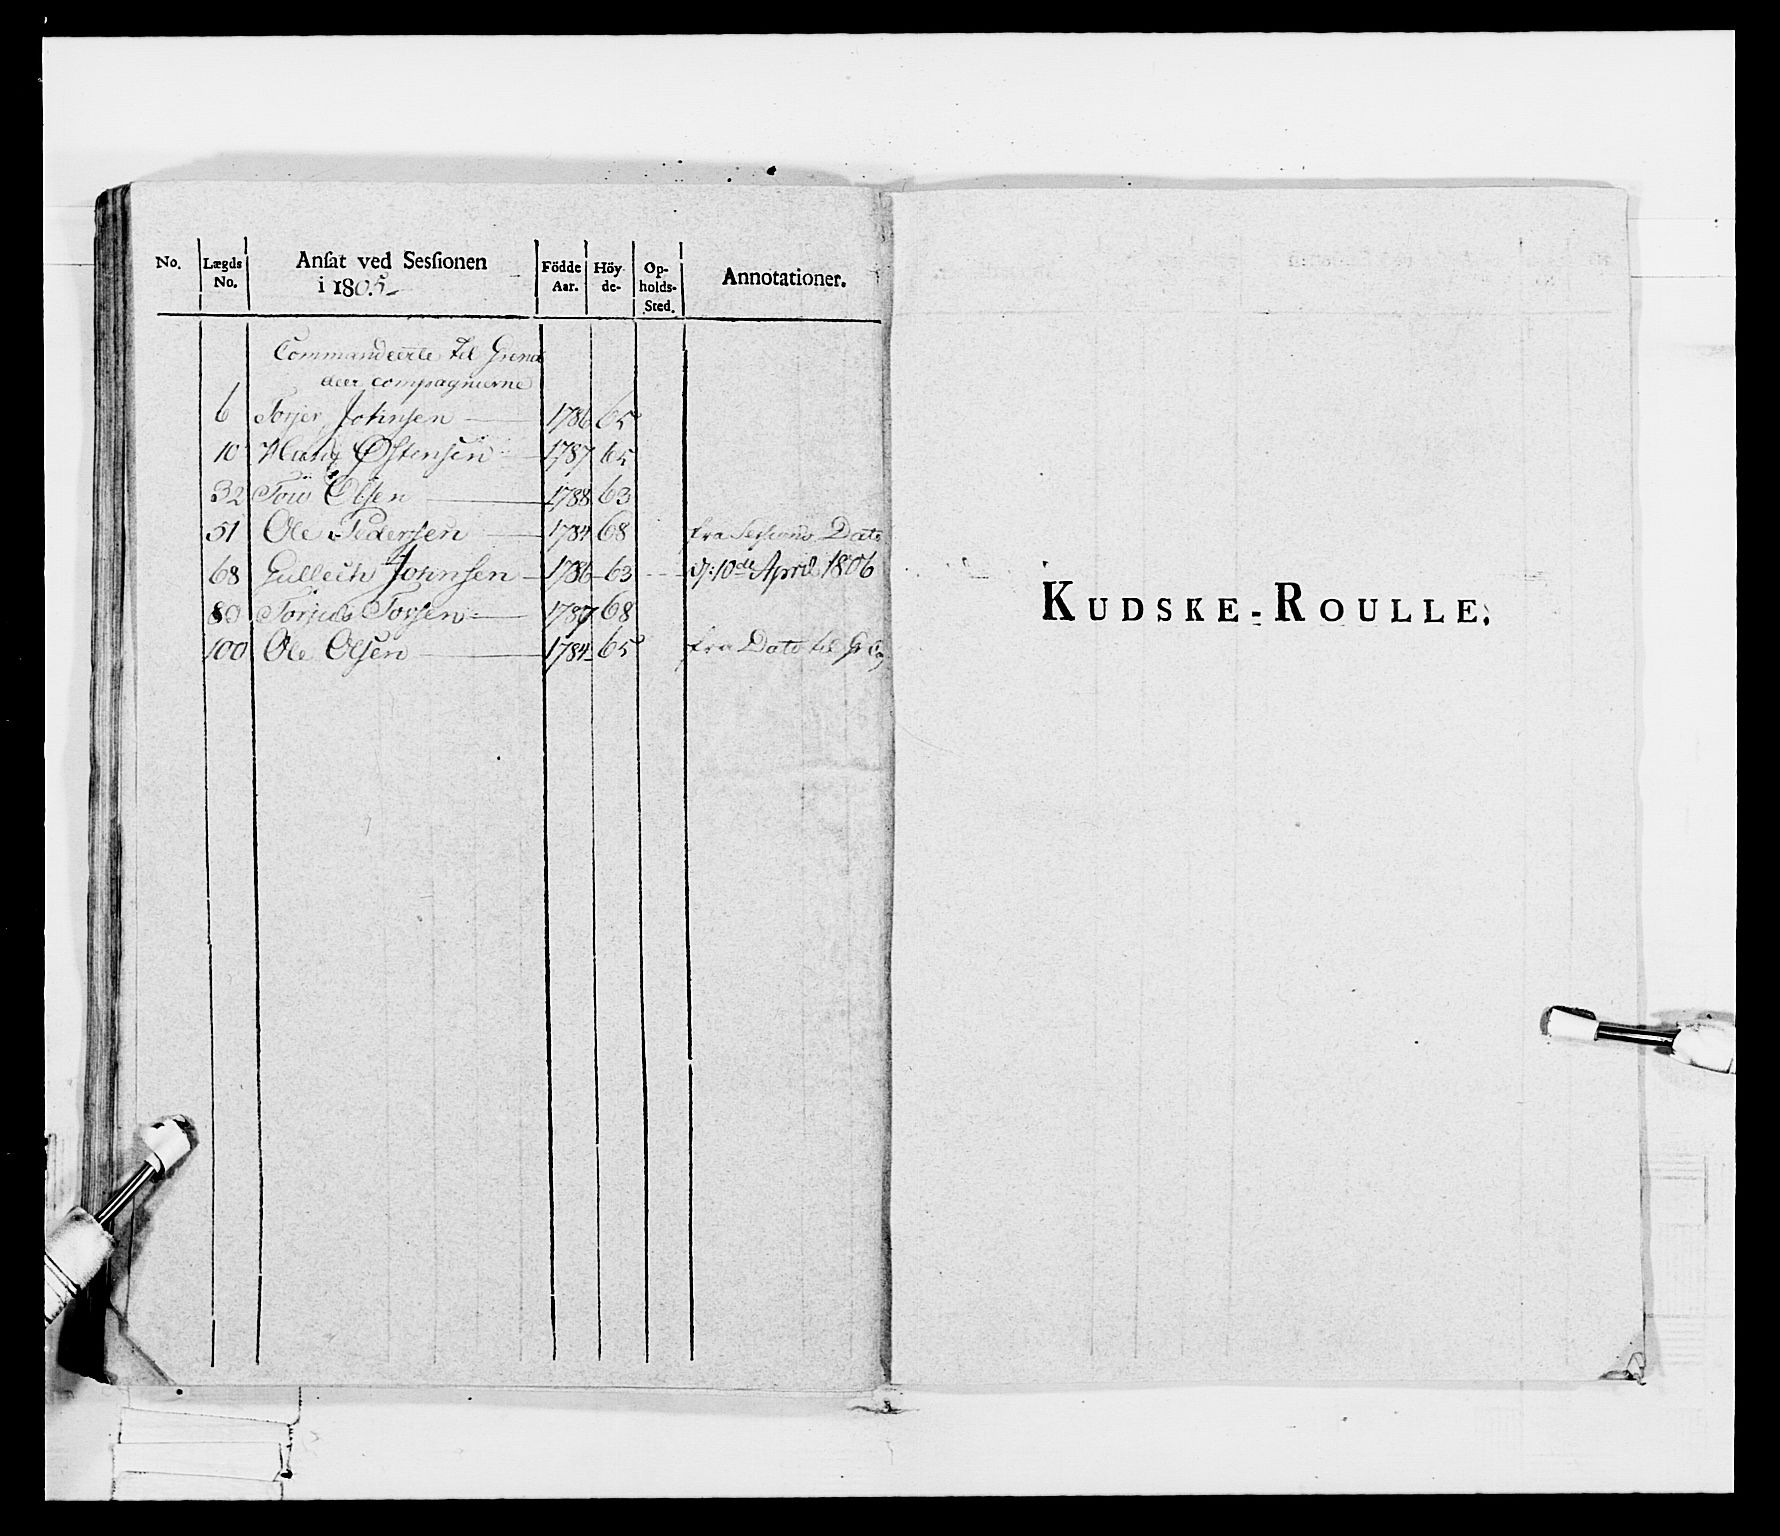 No. Lægds No. Ansat ved Sessionen i 1805 Födde Aar. Höy de- Op- holds- Sted. Annotationer.
Commandeerte til Grena
deer compagnierne
6 Torjer Johnsen 1786 65
10 Hans Østensen 1787 65
32 Olsen 1788 63
51 Ole Pedersen 1784 68 fra Sessions Dato
68 Gullech Johnsen 1786 63 d: 10de April 1806
80 Torjus 1787 68
100 Ole Olsen 1784 65 fra Dato til
KUDSKE-ROULLE.